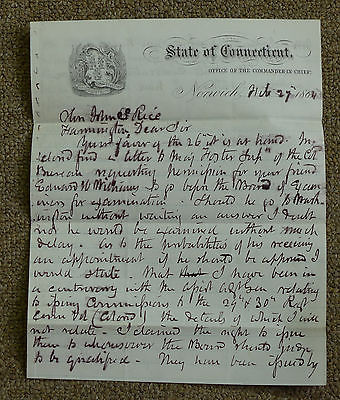 State of Connecticut.
OFFICE OF THE COMMANDER IN CHIEF,
Norwich, Feb 27 1864
Hon John E Rice
Farmington, Dear Sir
Your favor of the 26" is at hand. In-
closed find a letter to Maj Foster of the Col
Bureau requesting permission for your friend
Edward W to go before the Board of Exam
iners for examination. Should he go to Wash-
ington without waiting an answer I doubt
not he would be examined without much
delay. As to the probabilities of his receiving
an appointment if he should be approved I
would state. That I have been in
a controversy with the relating
to issuing Commissions to the 29" & 30" Regt
Conn Vol (Colored) the details of which I will
not relate. I claimed the right to issue
them to whomsoever the Board should judge
to be qualified. They have been issued by